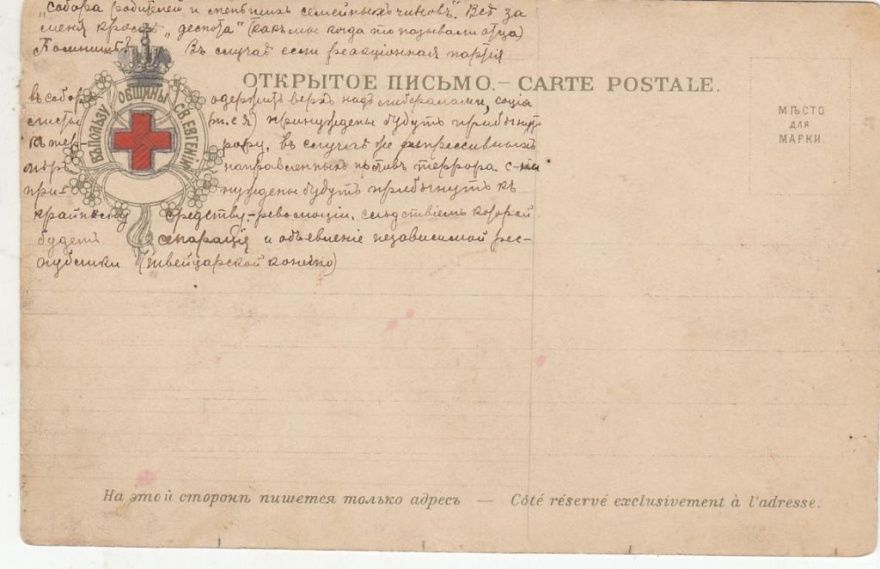 „собора родителей и меньшихъ семейныхъ чиновъ“. Всё за
меня кромѣ „деспота“ (какъ мы когда то называли отца)
Помнишь? Въ случаѣ если реакціонная партія
ОТКРЫТОЕ ПИСЬМО. — CARTE POSTALE.
въ собор одержитъ верхъ надъ либералами, соціа
листы (т.е я) принуждены будутъ прибѣгнут
къ тер рору, въ случаѣ же репрессивныхъ
мѣръ направленныхъ противъ террора с-ты
при нуждены будутъ прибѣгнуть къ
крайнему средству-революціи, слѣдствіемъ которой
будетъ сепарація и объявленіе независимой рес-
публики (швейцарской конечно)
ВЪ ПОЛЬЗУ ОБЩИНЫ СВ. ЕВГЕНІИ
МѢСТО
ДЛЯ
МАРКИ.
На этой сторонѣ пишется только адресъ — Côté réservé exclusivement à l'adresse.